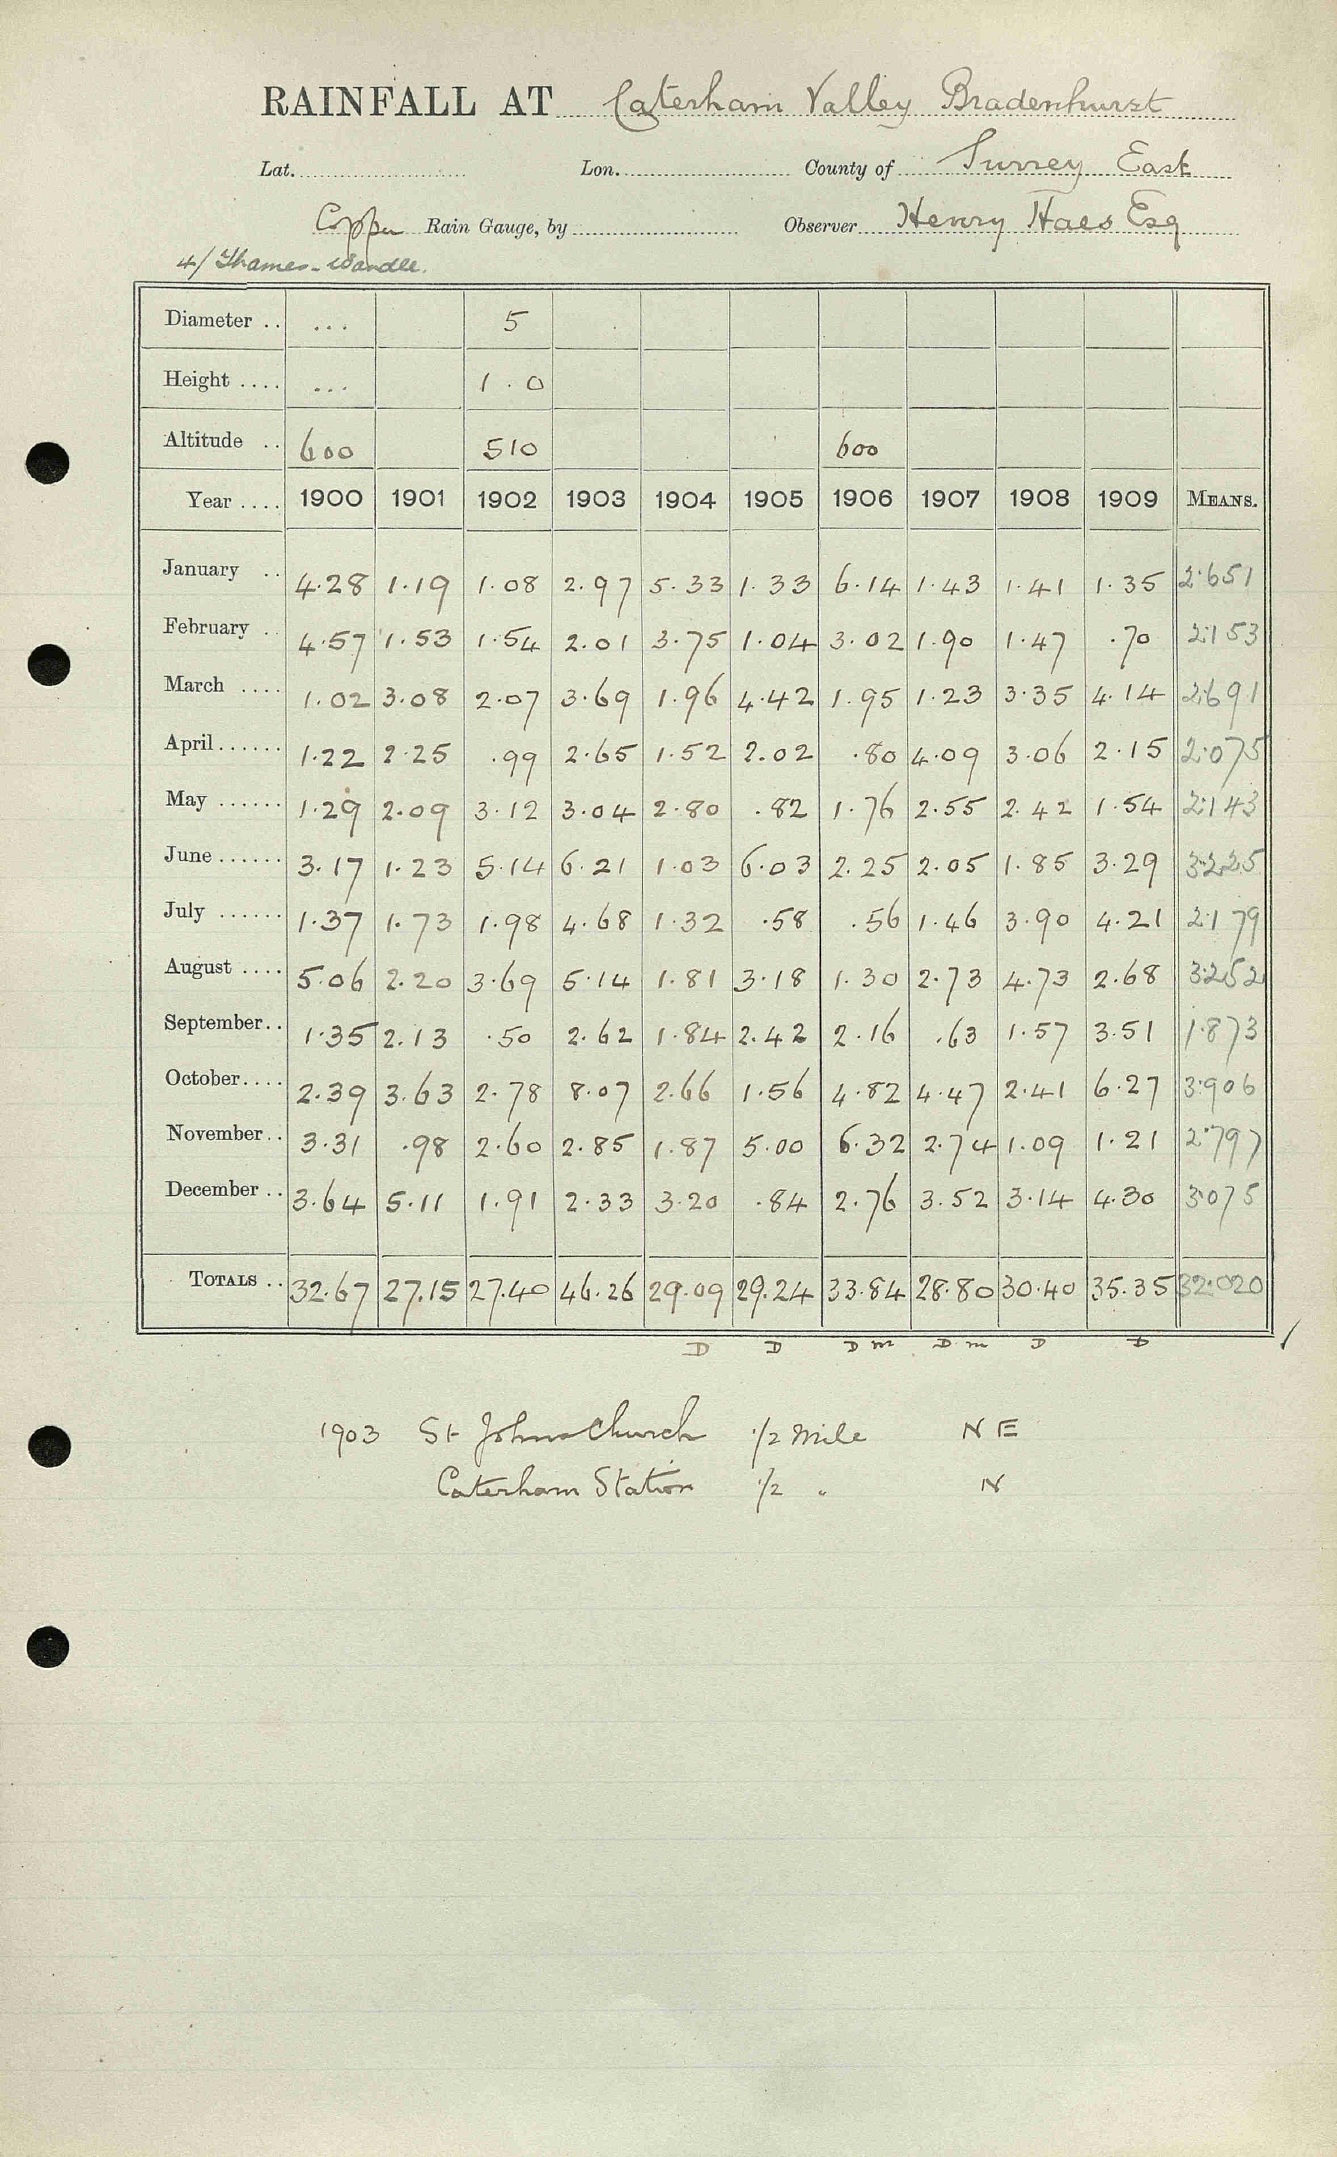 RAINFALL AT Caterham Valley Bradenhurst
Lat. Lon. County of Surrey East
Copper Rain Gauge, by Observer Henry Haes Esq
4/ Thames-Wandle.
Diameter .. ... 5
Height .... ... 1.0
Altitude .. 600 510 600
Year .... 1900 1901 1902 1903 1904 1905 1906 1907 1908 1909 MEANS.
January .. 4.28 1.19 1.08 2.97 5.33 1.33 6.14 1.43 1.41 1.35 2.651
February .. 4.57 1.53 1.54 2.01 3.75 1.04 3.02 1.90 1.47 .70 2.153
March .... 1.02 3.08 2.07 3.69 1.96 4.42 1.95 1.23 3.35 4.14 2.691
April...... 1.22 2.25 .99 2.65 1.52 2.02 .80 4.09 3.06 2.15 2.075
May ...... 1.29 2.09 3.12 3.04 2.80 .82 1.76 2.55 2.42 1.54 2.143
June...... 3.17 1.23 5.14 6.21 1.03 6.03 2.25 2.05 1.85 3.29 3.225
July ...... 1.37 1.73 1.98 4.68 1.32 .58 .56 1.46 3.90 4.21 2.179
August .... 5.06 2.20 3.69 5.14 1.81 3.18 1.30 2.73 4.73 2.68 3.252
September.. 1.35 2.13 .50 2.62 1.84 2.42 2.16 .63 1.57 3.51 1.873
October.... 2.39 3.63 2.78 8.07 2.66 1.56 4.82 4.47 2.41 6.27 3.906
November.. 3.31 .98 2.60 2.85 1.87 5.00 6.32 2.74 1.09 1.21 2.797
December .. 3.64 5.11 1.91 2.33 3.20 .84 2.76 3.52 3.14 4.30 3.075
TOTALS .. 32.67 27.15 27.40 46.26 29.09 29.24 33.84 28.80 30.40 35.35 32.020
D D D m D m D D
1903 St Johns Church 1/2 Mile N E
Caterham Station 1/2 " N